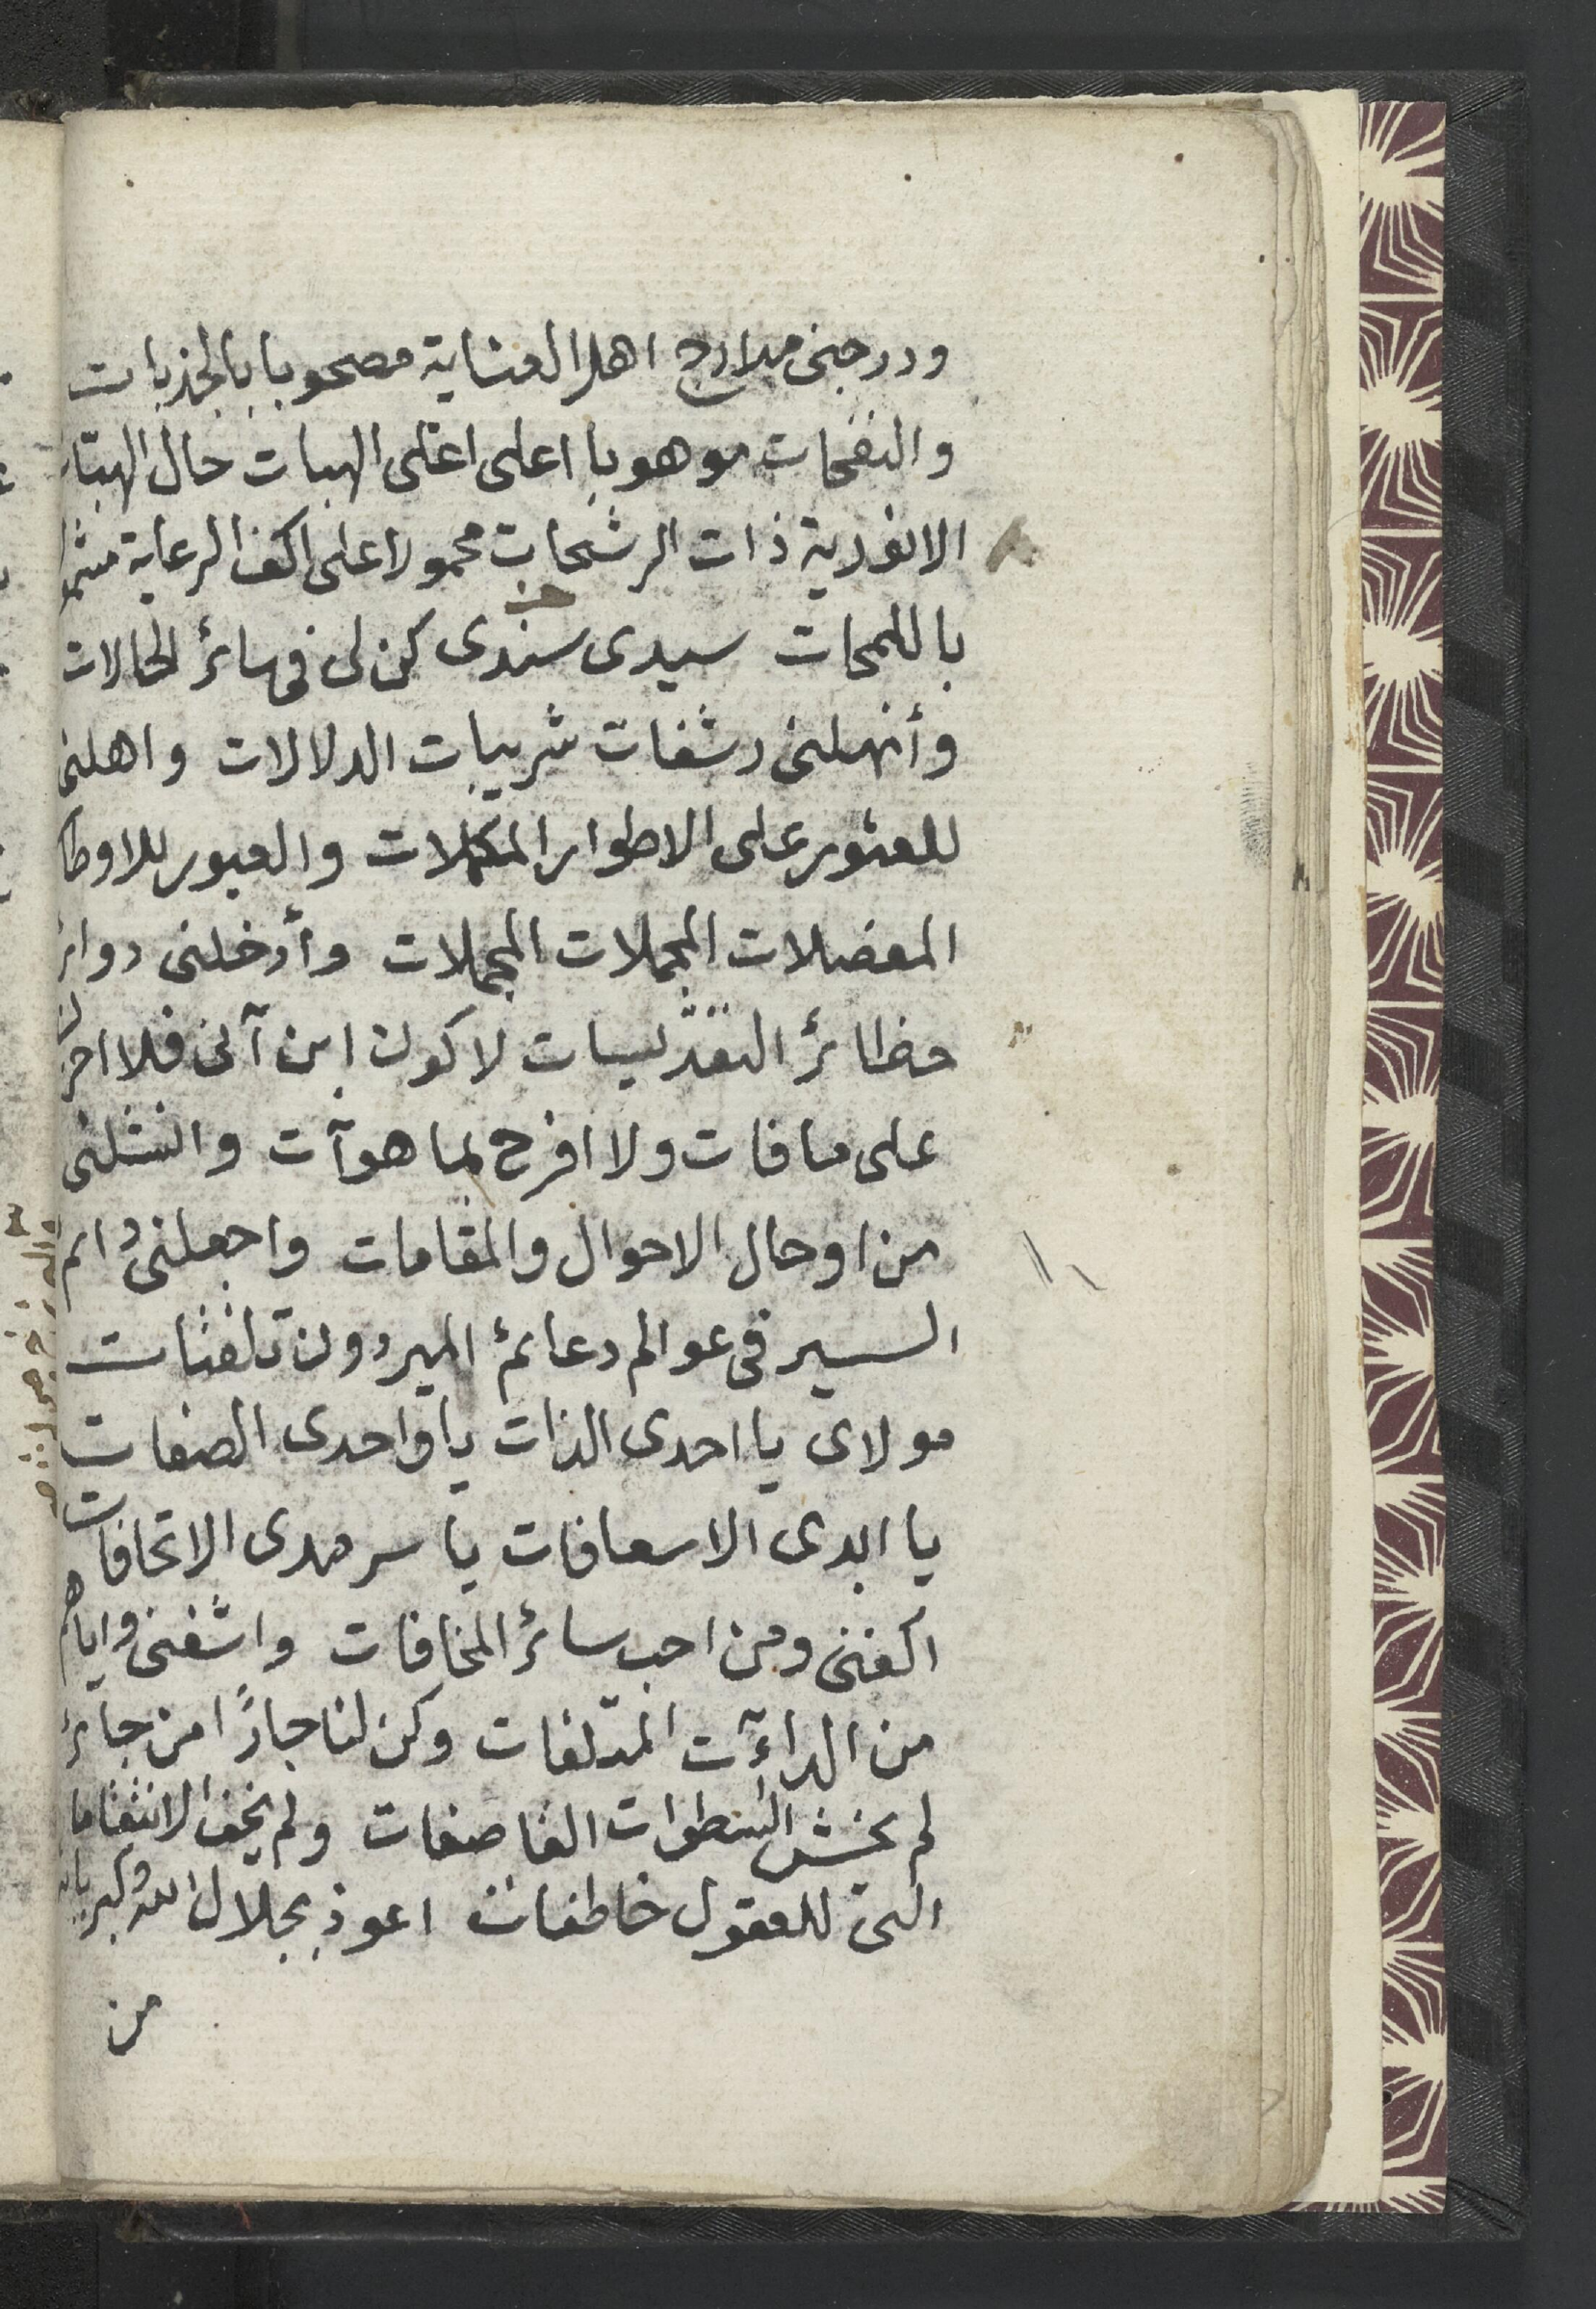 ودرجنى مدارج اهل العناية مصحوبا بالجذبات
والنفحات موهوبا اعلى اغلى الهبات حال الهبات
الانفردية ذات الرشحات محمولا على اكف الرعاية مشمو
باللمحات سيدى سندى كن لى فى سائر الحالات
وأنهلنى رشفات شريبات الدلالات واهلنى
للعثور على الاطوار المكملات والعبور للاوطا
المعضلات المجملات المجملات وأدخلنى دوائر
حظائر التقدّيسيات لاكون ابن آنى فلا احزن
على ما فات ولا افرح بما هو آت وانشلنى
من اوحال الاحوال والمقامات واجعلنى دائم
السير فى عوالم دعائم البر دون تلفتات
مولاى يا احدى الذات يا واحدى الصفات
يا ابدى الاسعافات يا سرمدى الاتحافات
اكفنى ومن احب سائر المخافات واشفنى واياهم
من الداءآت المتلفات وكن لنا جارًا من جائر
لم يخش السطوات القاصفات ولم يخف الانتقاما
التى للعقول خاطفات اعوذ بجلال الله وكبريائه
من